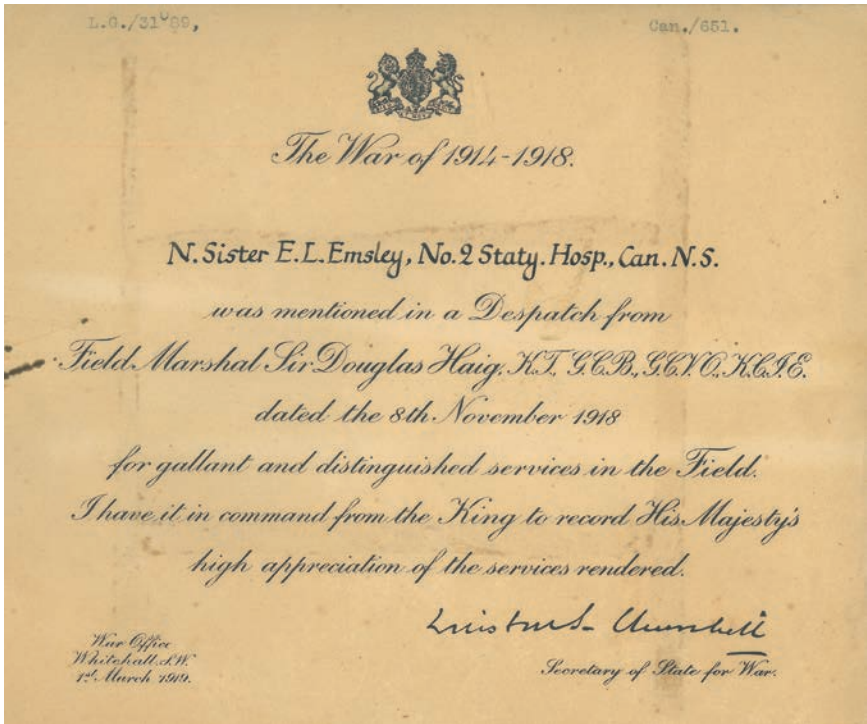 L.G./31089,
Can./651.
The War of 1914-1918.
N. Sister E.L. Emsley, No. 2 Staty. Hosp., Can. N.S.
was mentioned in a Despatch from
Field Marshal Sir Douglas Haig, K.T., G.C.B., G.C.V.O., K.C.I.E.
dated the 8th November 1918
for gallant and distinguished services in the Field.
I have it in command from the King to record His Majesty's
high appreciation of the services rendered.
Winston S. Churchill
War Office
Whitehall, S.W.
1st March 1919.
Secretary of State for War.